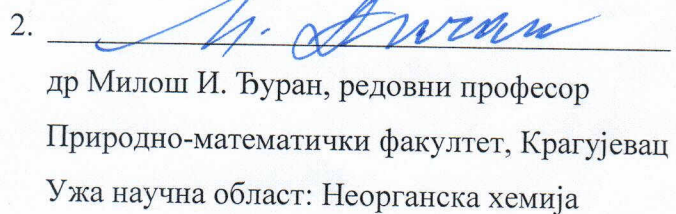 2. М. Ђуран
др Милош И. Ђуран, редовни професор
Природно-математички факултет, Крагујевац
Ужа научна област: Неорганска хемија